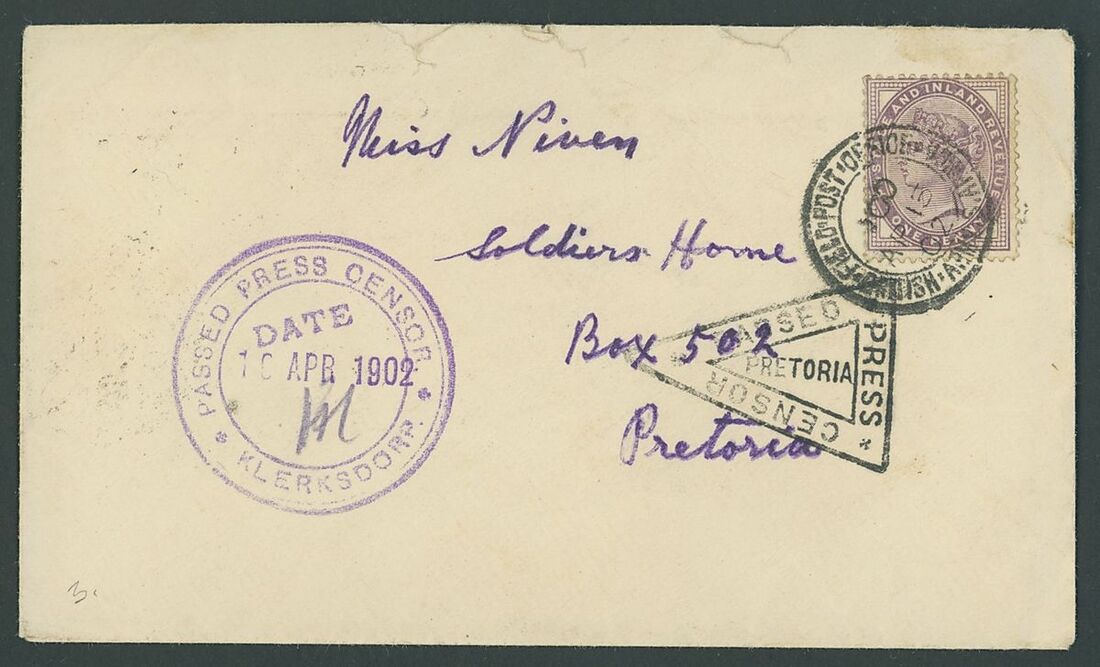 Miss Niven
Soldiers Home
Box 502
Pretoria
AND INLAND REVENUE
ONE PENNY
FIELD·POST·OFFICE·BRITISH·ARMY
02
PASSED PRESS CENSOR
DATE
APR 1902
* KLERKSDORP. *
PASSED
PRESS *
CENSOR
PRETORIA